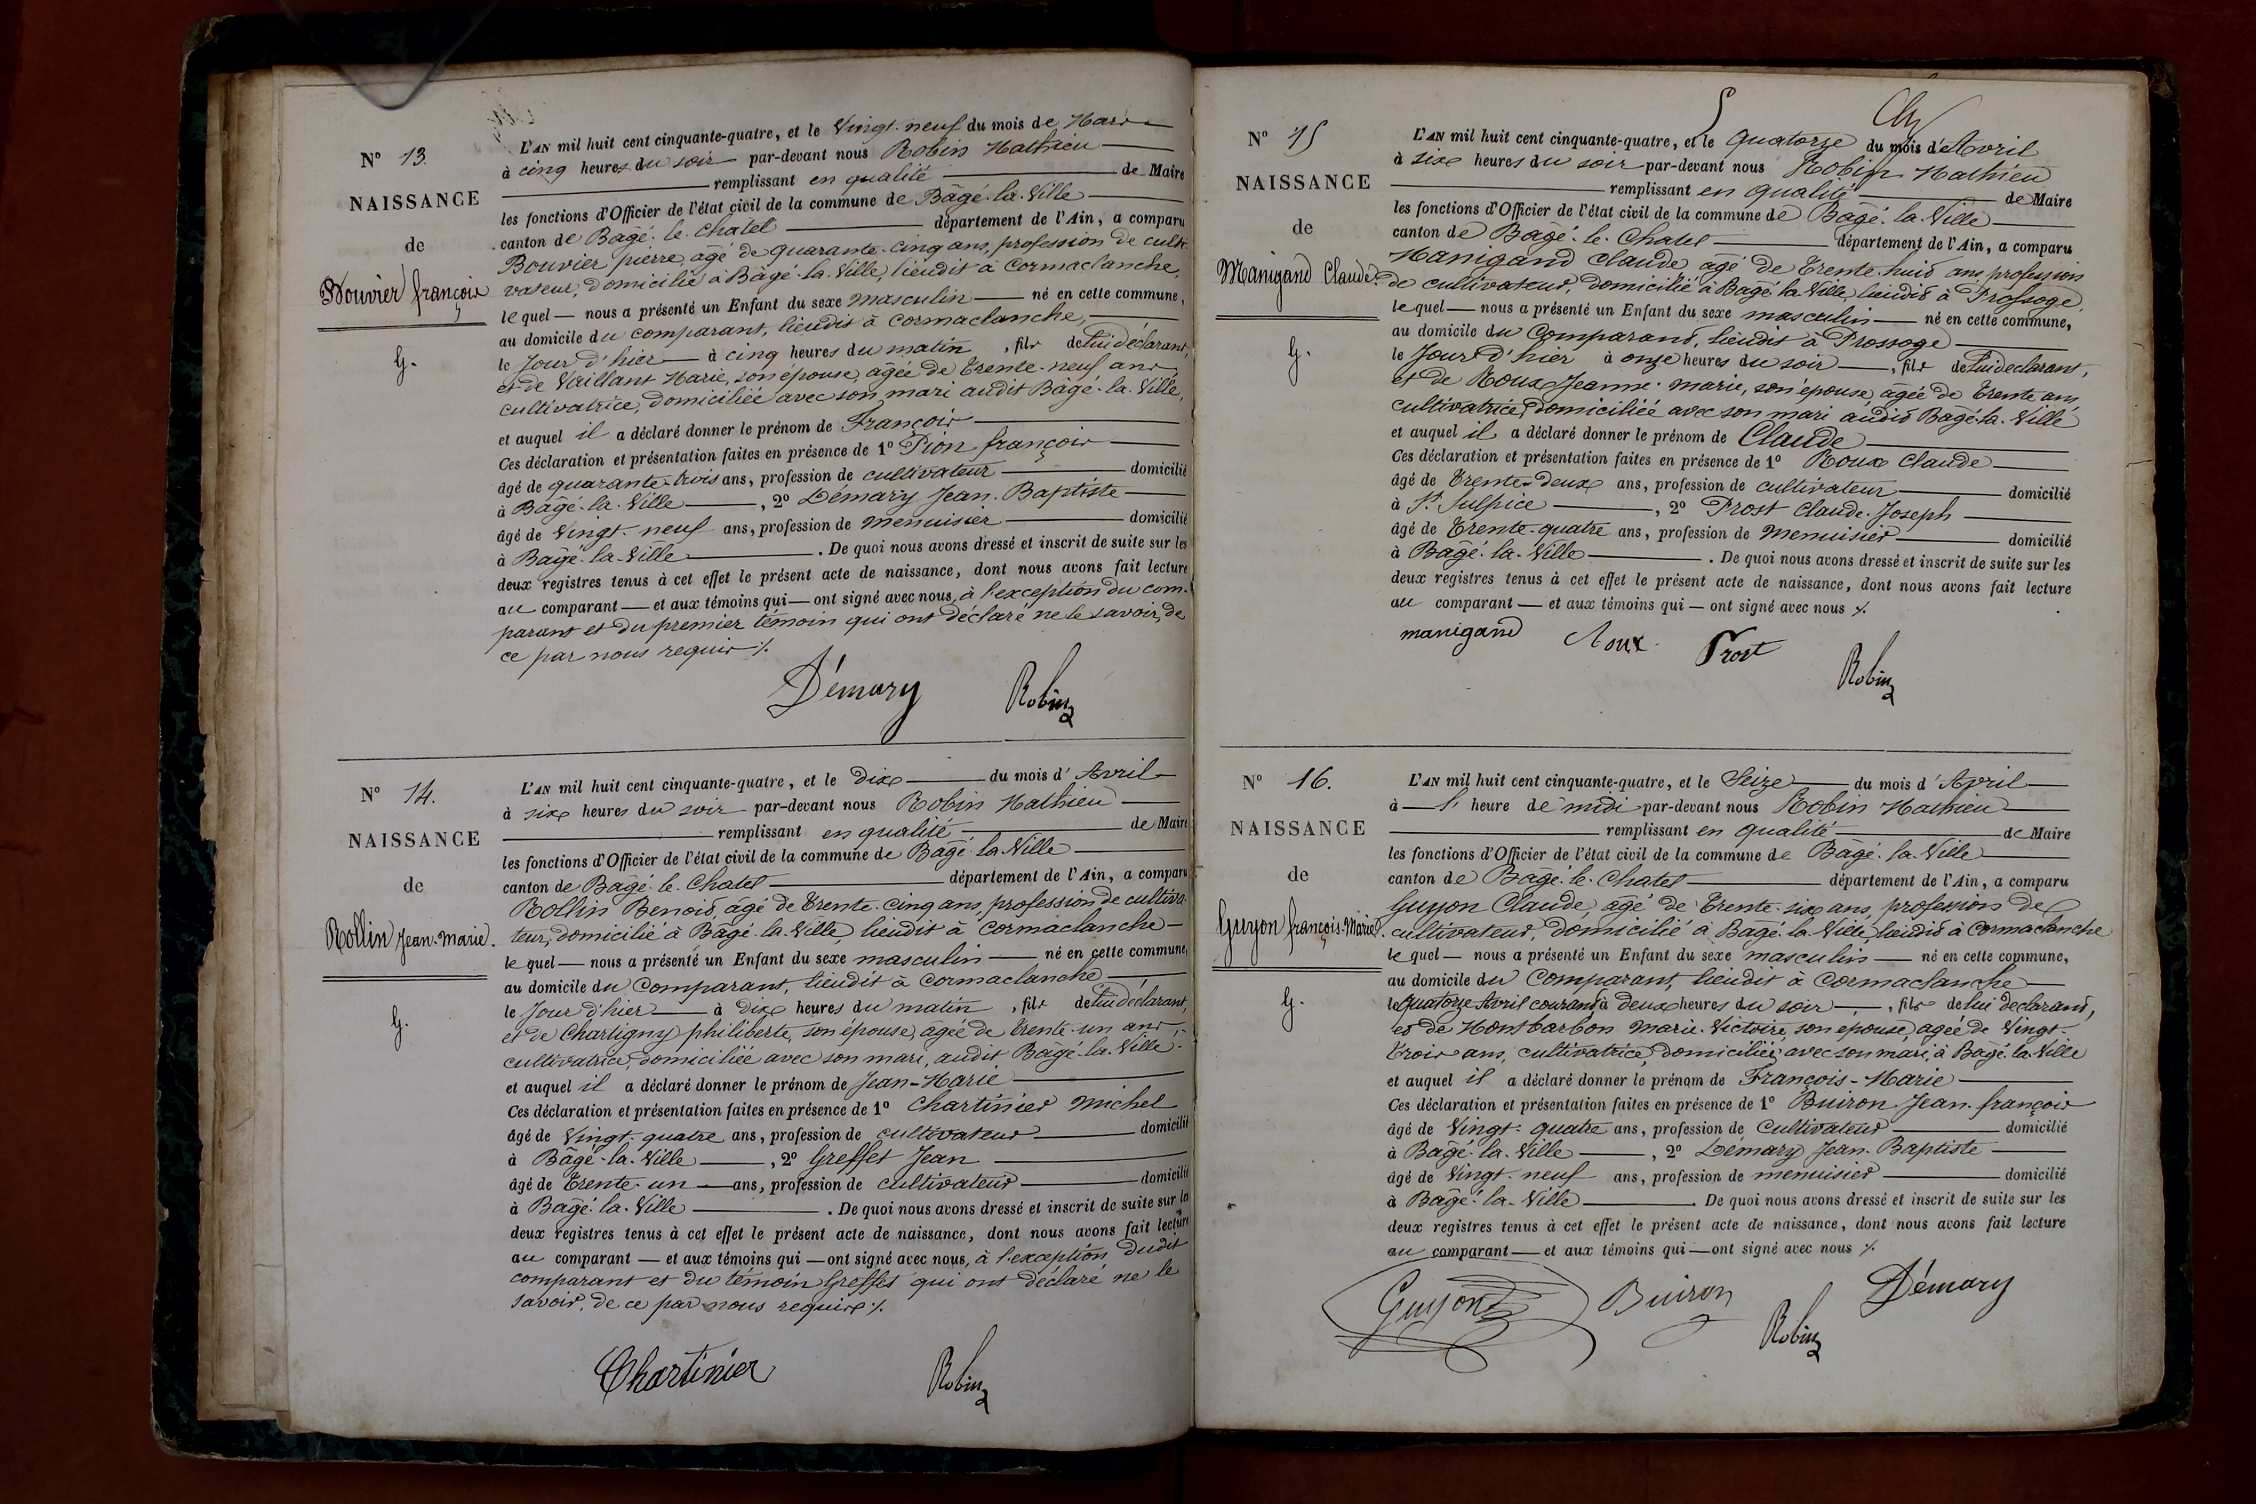 N° 13.
NAISSANCE
de
Bouvier françois
G.
L'AN mil huit cent cinquante-quatre, et le Vingt-neuf du mois de Mars
à cinq heures du soir par-devant nous Robin Mathieu
remplissant en qualité de Maire
les fonctions d'Officier de l'état civil de la commune de Bâgé-la-Ville
canton de Bâgé-le-Chatel département de l'Ain, a comparu
Bouvier pierre, âgé de quarante-cinq ans, profession de culti-
vateur, domicilié à Bâgé-la-Ville, lieudit à Cormaclanche,
lequel nous a présenté un Enfant du sexe masculin né en cette commune,
au domicile du comparant, lieudit à Cormaclanche,
le Jour d'hier à cinq heures du matin, fils de lui déclarant,
et de Vaillant Marie, son épouse, âgée de trente-neuf ans,
cultivatrice, domiciliée avec son mari audit Bâgé-la-Ville,
et auquel il a déclaré donner le prénom de François
Ces déclaration et présentation faites en présence de 1° Pion françois
âgé de quarante-trois ans, profession de cultivateur domicilié
à Bâgé-la-Ville, 2° Démary Jean-Baptiste
âgé de Vingt-neuf ans, profession de menuisier domicilié
à Bâgé-la-Ville. De quoi nous avons dressé et inscrit de suite sur les
deux registres tenus à cet effet le présent acte de naissance, dont nous avons fait lecture
au comparant et aux témoins qui ont signé avec nous, à l'exception du com-
parant et du premier témoin qui ont déclaré ne le savoir, de
ce par nous requis ./.
Démary Robin
N° 14.
NAISSANCE
de
Rollin Jean-Marie.
G.
L'AN mil huit cent cinquante-quatre, et le dix du mois d'Avril
à six heures du soir par-devant nous Robin Mathieu
remplissant en qualité de Maire
les fonctions d'Officier de l'état civil de la commune de Bâgé-la-Ville
canton de Bâgé-le-Chatel département de l'Ain, a comparu
Rollin Benoit, âgé de trente-cinq ans, profession de cultiva-
teur, domicilié à Bâgé-la-Ville, lieudit à Cormaclanche
lequel nous a présenté un Enfant du sexe masculin né en cette commune,
au domicile du comparant, lieudit à Cormaclanche
le Jour d'hier à dix heures du matin, fils de lui déclarant,
et de Chartigny philiberte, son épouse, âgée de trente-un ans,
cultivatrice, domiciliée avec son mari, audit Bâgé-la-Ville
et auquel il a déclaré donner le prénom de Jean-Marie
Ces déclaration et présentation faites en présence de 1° Chartinier Michel
âgé de Vingt-quatre ans, profession de cultivateur domicilié
à Bâgé-la-Ville, 2° Greffet Jean
âgé de trente-un ans, profession de cultivateur domicilié
à Bâgé-la-Ville. De quoi nous avons dressé et inscrit de suite sur les
deux registres tenus à cet effet le présent acte de naissance, dont nous avons fait lecture
au comparant et aux témoins qui ont signé avec nous, à l'exception dudit
comparant et du témoin Greffet qui ont déclaré ne le
savoir, de ce par nous requis ./.
Chartinier Robin
5
N° 15
NAISSANCE
de
Manigand Claude.
G.
L'AN mil huit cent cinquante-quatre, et le quatorze du mois d'Avril
à six heures du soir par-devant nous Robin Mathieu
remplissant en qualité de Maire
les fonctions d'Officier de l'état civil de la commune de Bâgé-la-Ville
canton de Bâgé-le-Chatel département de l'Ain, a comparu
Manigand Claude âgé de trente-huit ans, profession
de cultivateur, domicilié à Bâgé-la-Ville, lieudit à Prossoge,
lequel nous a présenté un Enfant du sexe masculin né en cette commune,
au domicile du comparant, lieudit à Prossoge
le Jour d'hier à onze heures du soir, fils de lui déclarant,
et de Roux Jeanne-marie, son épouse, âgée de trente ans,
cultivatrice, domiciliée avec son mari audit Bâgé-la-Ville
et auquel il a déclaré donner le prénom de Claude
Ces déclaration et présentation faites en présence de 1° Roux Claude
âgé de trente-deux ans, profession de cultivateur domicilié
à St. Sulpice, 2° Prost Claude-Joseph
âgé de trente-quatre ans, profession de menuisier domicilié
à Bâgé-la-Ville. De quoi nous avons dressé et inscrit de suite sur les
deux registres tenus à cet effet le présent acte de naissance, dont nous avons fait lecture
au comparant et aux témoins qui ont signé avec nous ./.
manigand Roux Prost
Robin
N° 16.
NAISSANCE
de
Guyon françois-Marie.
G.
L'AN mil huit cent cinquante-quatre, et le Seize du mois d'Avril
à l' heure de midi par-devant nous Robin Mathieu
remplissant en qualité de Maire
les fonctions d'Officier de l'état civil de la commune de Bâgé-la-Ville
canton de Bâgé-le-Chatel département de l'Ain, a comparu
Guyon Claude, âgé de trente-six ans, profession de
cultivateur, domicilié à Bâgé-la-Ville, lieudit à Cormaclanche
lequel nous a présenté un Enfant du sexe masculin né en cette commune,
au domicile du comparant, lieudit à Cormaclanche
le quatorze Avril courant à deux heures du soir, fils de lui déclarant,
et de Montbarbon Marie-Victoire, son épouse, âgée de Vingt-
trois ans, cultivatrice, domiciliée avec son mari, à Bâgé-la-Ville
et auquel il a déclaré donner le prénom de François-Marie
Ces déclaration et présentation faites en présence de 1° Buiron Jean-françois
âgé de Vingt-quatre ans, profession de cultivateur domicilié
à Bâgé-la-Ville, 2° Démary Jean-Baptiste
âgé de Vingt-neuf ans, profession de menuisier domicilié
à Bâgé-la-Ville. De quoi nous avons dressé et inscrit de suite sur les
deux registres tenus à cet effet le présent acte de naissance, dont nous avons fait lecture
au comparant et aux témoins qui ont signé avec nous ./.
Guyon Buiron Démary
Robin